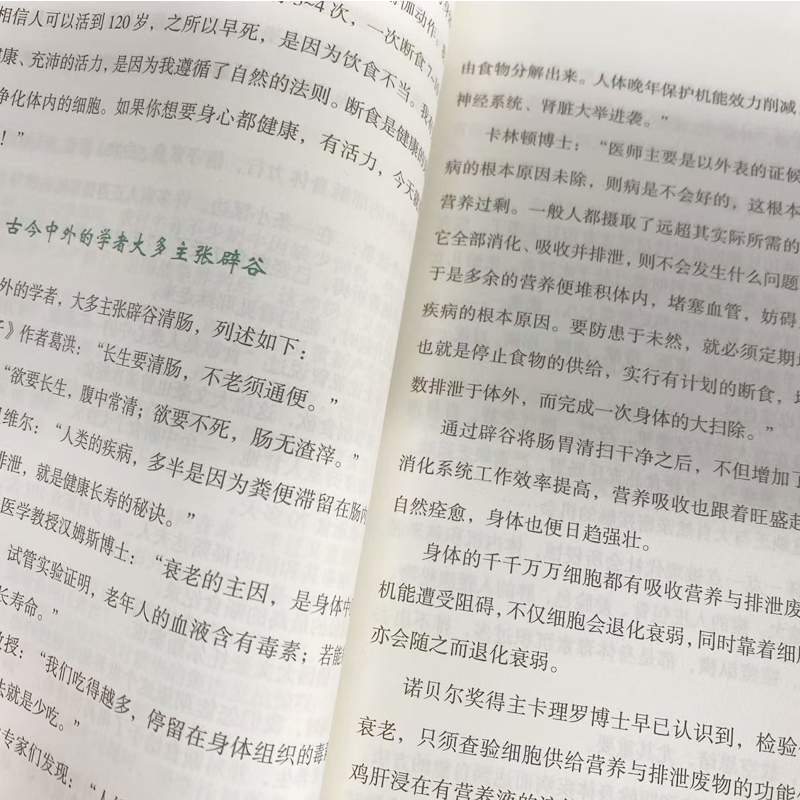 3~4次，一次断食7~
相信人可以活到120岁，之所以早死，是因为饮食不当。我
健康、充沛的活力，是因为我遵循了自然的法则。断食是健康的
净化体内的细胞。如果你想要身心都健康，有活力，今天
！”
古今中外的学者大多主张辟谷
外的学者，大多主张辟谷清肠，列述如下：
》作者葛洪：“长生要清肠，不老须通便。”
“欲要长生，腹中常清；欲要不死，肠无渣滓。”
维尔：“人类的疾病，多半是因为粪便滞留在肠内
排泄，就是健康长寿的秘诀。”
医学教授汉姆斯博士：“衰老的主因，是身体中
试管实验证明，老年人的血液含有毒素；若能
长寿命。”
教授：“我们吃得越多，停留在身体组织的毒
法就是少吃。”
专家们发现：“人
由食物分解出来。人体晚年保护机能效力削减
神经系统、肾脏大举进袭。”
卡林顿博士：“医师主要是以外表的证候
病的根本原因未除，则病是不会好的，这根本
营养过剩。一般人都摄取了远超其实际所需的
它全部消化、吸收并排泄，则不会发生什么问题
于是多余的营养便堆积体内，堵塞血管，妨碍
疾病的根本原因。要防患于未然，就必须定期
也就是停止食物的供给，实行有计划的断食，
数排泄于体外，而完成一次身体的大扫除。”
通过辟谷将肠胃清扫干净之后，不但增加了
消化系统工作效率提高，营养吸收也跟着旺盛起
自然痊愈，身体也便日趋强壮。
身体的千千万万细胞都有吸收营养与排泄废
机能遭受阻碍，不仅细胞会退化衰弱，同时靠着细
亦会随之而退化衰弱。
诺贝尔奖得主卡理罗博士早已认识到，检验
衰老，只须查验细胞供给营养与排泄废物的功能
鸡肝浸在有营养液的